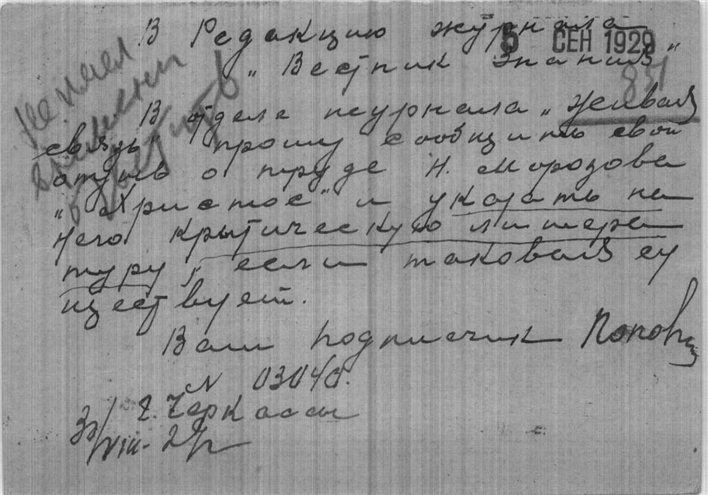 В Редакцию журнала
5 СЕН 1929
„Вестник Знания"
В отделе журнала „Живая
связь" прошу сообщить свой
отзыв о труде Н. Морозова
„Христос" и указать на
него критическую литера
туру, если таковая су
ществует.
Ваш подписчик
N 03040.
г. Черкассы
30/VIII-29 г.